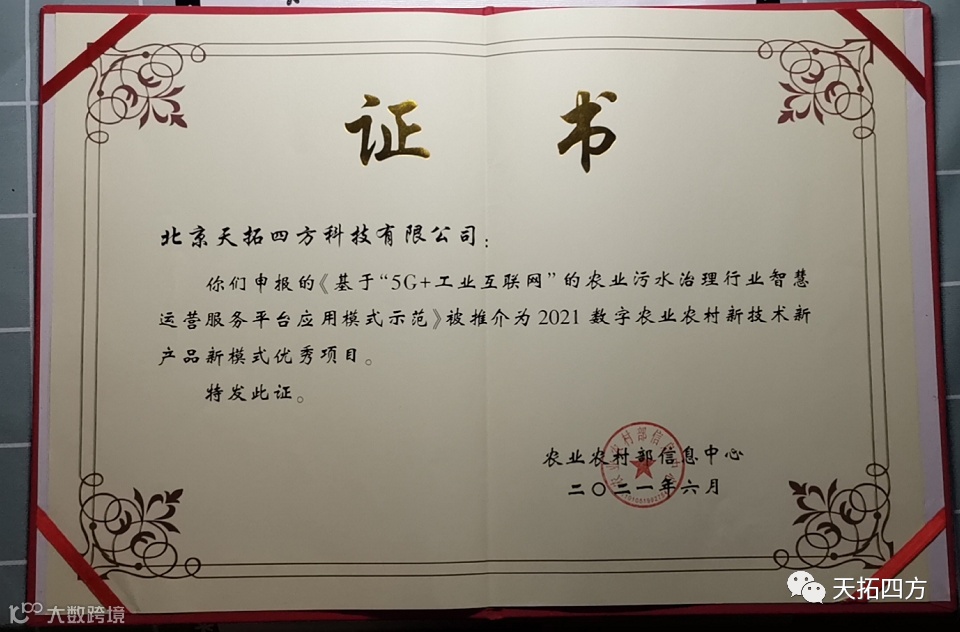 证 书
北京天拓四方科技有限公司：
你们申报的《基于“5G+工业互联网”的农业污水治理行业智慧
运营服务平台应用模式示范》被推介为2021数字农业农村新技术新
产品新模式优秀项目。
特发此证。
农业农村部信息中心
二〇二一年六月
天拓四方
大数跨境